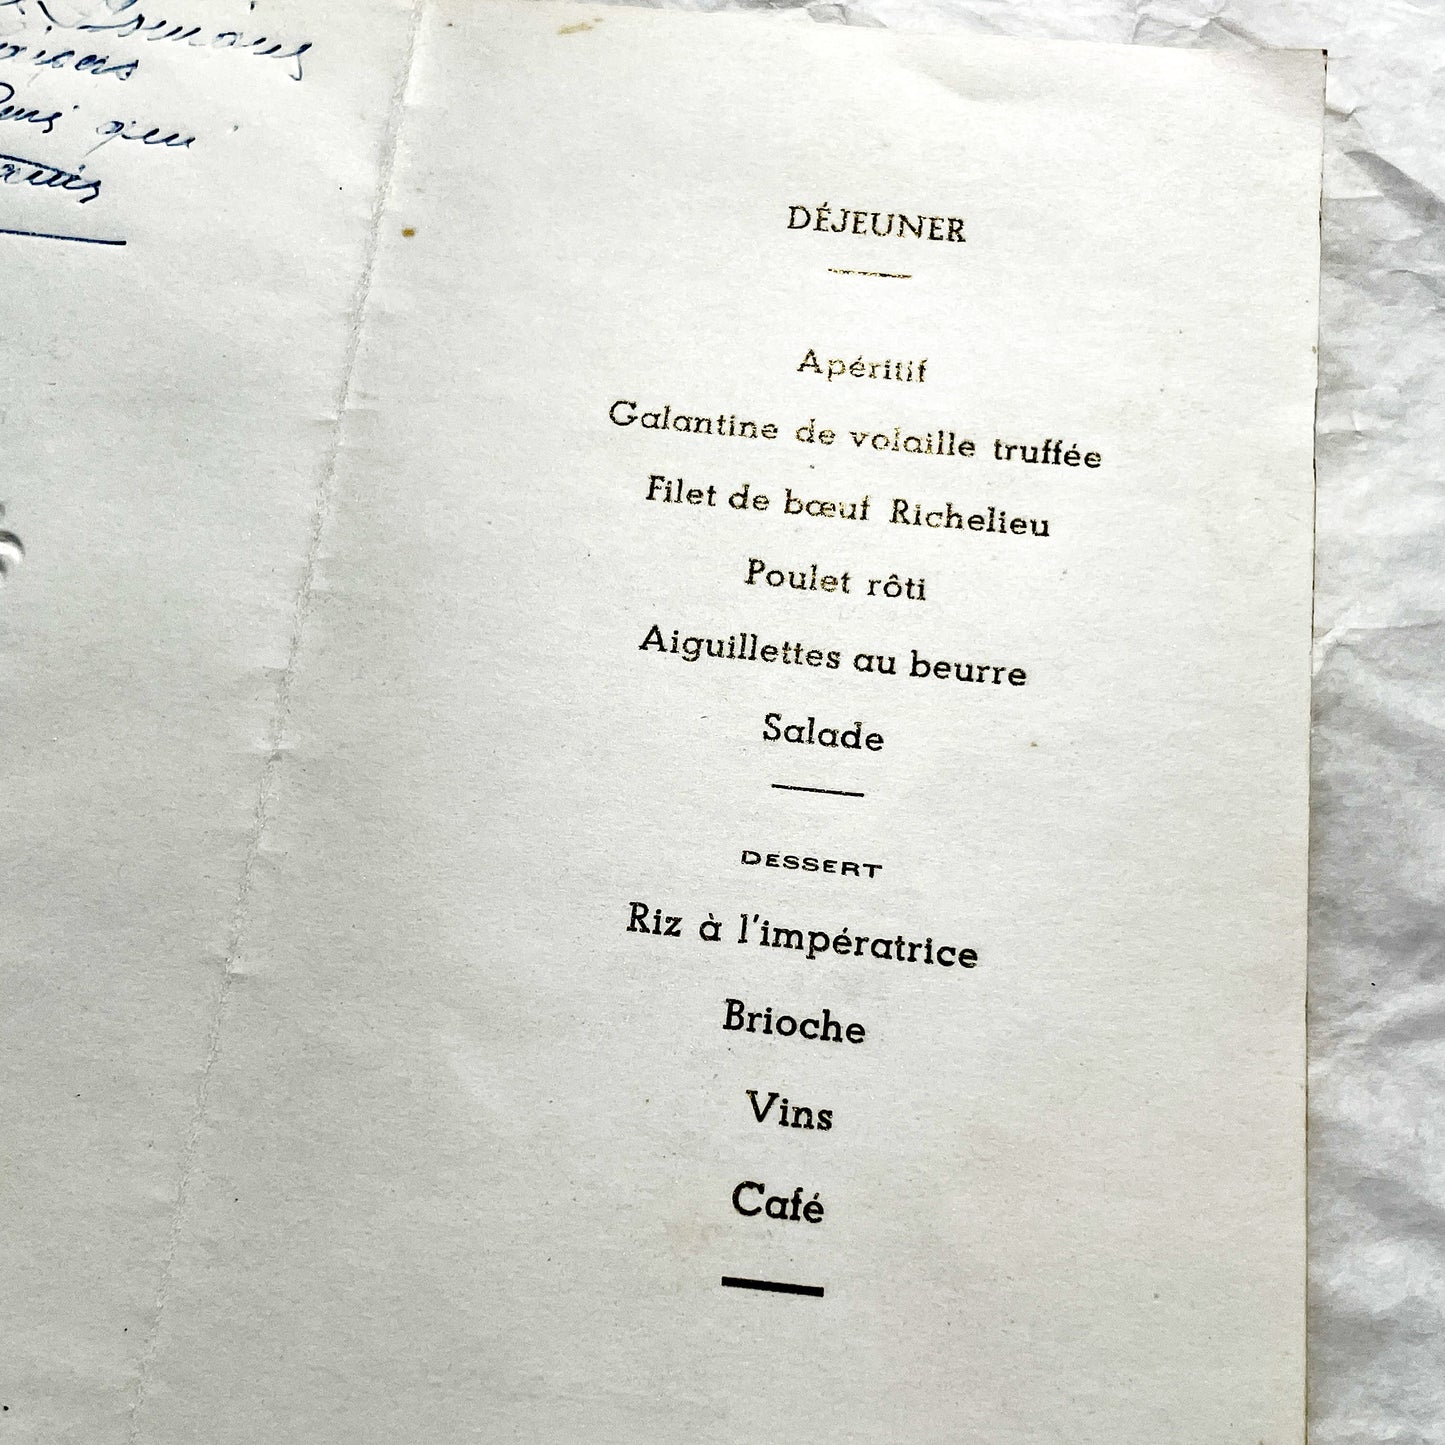 qui
DÉJEUNER
Apéritif
Galantine de volaille truffée
Filet de bœuf Richelieu
Poulet rôti
Aiguillettes au beurre
Salade
DESSERT
Riz à l'impératrice
Brioche
Vins
Café